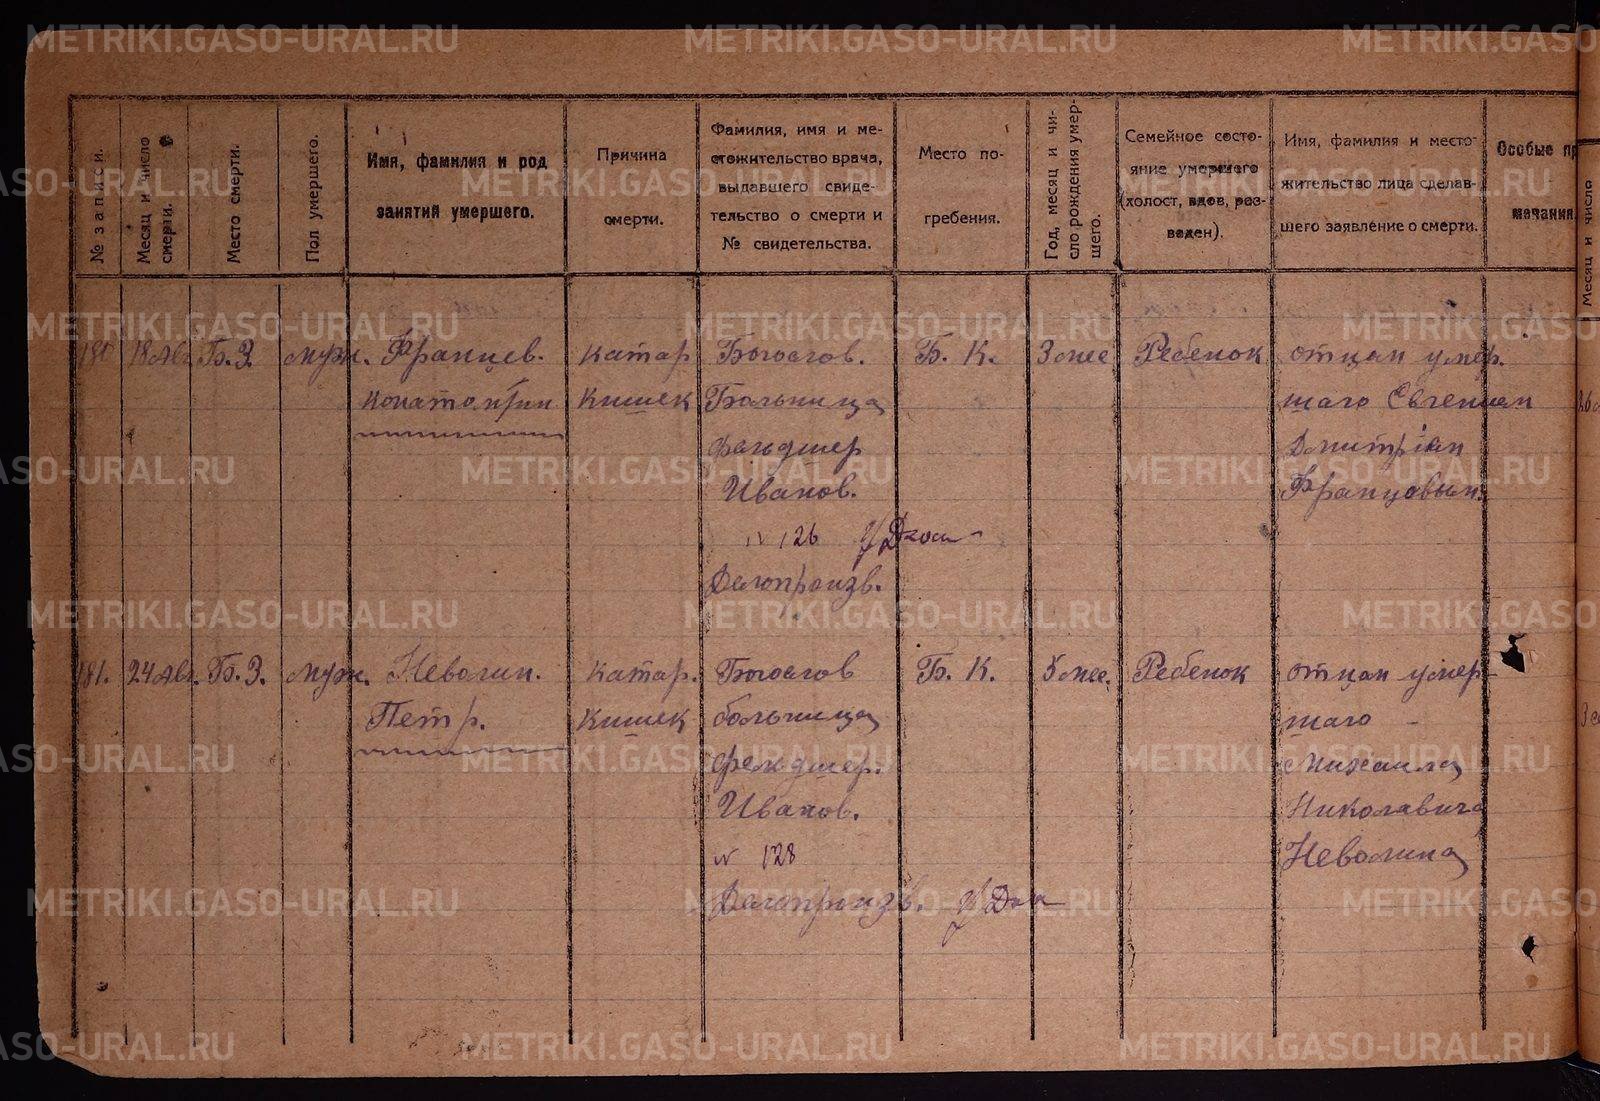 METRIKI.GASO-URAL.RU
№ записи.
Месяц и число смерти.
Место смерти.
Пол умершего.
Имя, фамилия и род
занятий умершего.
Причина
смерти.
Фамилия, имя и ме-
стожительство врача,
выдавшего свиде-
тельство о смерти и
№ свидетельства.
Место по-
гребения.
Год, месяц и чи-
сло рождения умер-
шего.
Семейное состо-
яние умершего
(холост, вдов, раз-
веден).
Имя, фамилия и место-
жительство лица сделав-
шего заявление о смерти.
Особые пр
мечания.
Месяц и число
180 18 Авг. Б.З. муж. Францев.
катар
кишек
Богослов.
Больница
фельдшер
Иванов.
№ 126
Делопроизв.
Б. К.
3 мес
Ребенок
отцом умер.
шаго Евгением
Дмитрием
Францовым.
181. 24 Авг. Б.З. муж. Неволин.
Петр.
катар.
кишек
Богослов
больница
фельдшер.
Иванов.
№ 128
Делопроизв.
Б. К.
5 мес.
Ребенок
отцом умер-
шаго -
Михаила
Николавича
Неволина